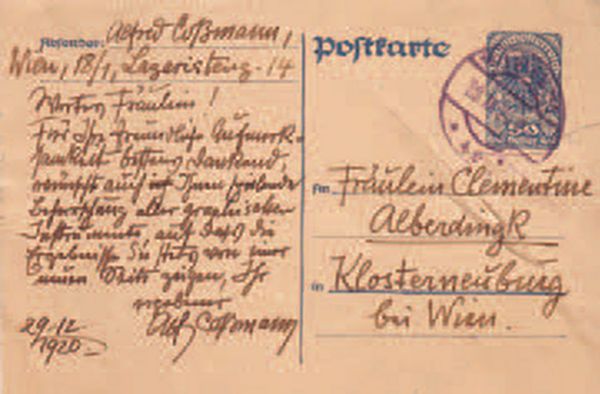 Absender: Alfred Coßmann,
Wien, 18/1, Lazaristeng. 14
Wertes Fräulein!
Für Ihre freundliche Aufmerk-
samkeit bestens dankend
wünscht auch ich Ihnen
Beherrschung aller graphischen
Instrumente auf daß die
Ergebnisse Sie stets von einer
neuen Seite zeigen, Ihr
ergebener
Alf. Coßmann
29.12.
1920
Postkarte
An Fräulein Clementine
Alberdingk
in Klosterneuburg
bei Wien.